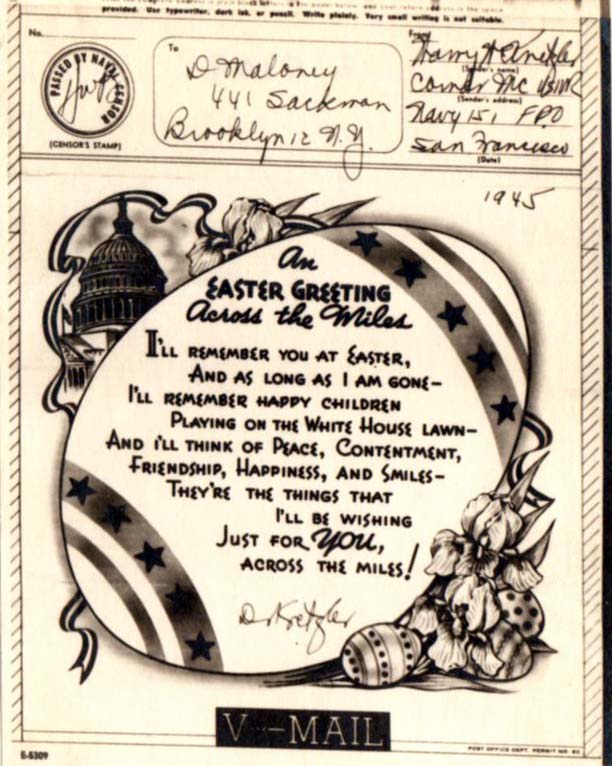 provided. Use typewriter, dark ink, or pencil. Write plainly. Very small writing is not suitable.
No.
PASSED BY NAVAL CENSOR
(CENSOR'S STAMP)
To
D Maloney
441 Sackman
Brooklyn 12 N.Y.
From
Harry
(Sender's name)
Comar MC
(Sender's address)
Navy 151 FPO
San Francisco
(Date)
1945
An
EASTER GREETING
Across the Miles
I'LL REMEMBER YOU AT EASTER,
AND AS LONG AS I AM GONE—
I'LL REMEMBER HAPPY CHILDREN
PLAYING ON THE WHITE HOUSE LAWN—
AND I'LL THINK OF PEACE, CONTENTMENT,
FRIENDSHIP, HAPPINESS, AND SMILES—
THEY'RE THE THINGS THAT
I'LL BE WISHING
JUST FOR YOU,
ACROSS THE MILES!
Dr Kretzler
V···—MAIL
E-5309
POST OFFICE DEPT. PERMIT NO. 80